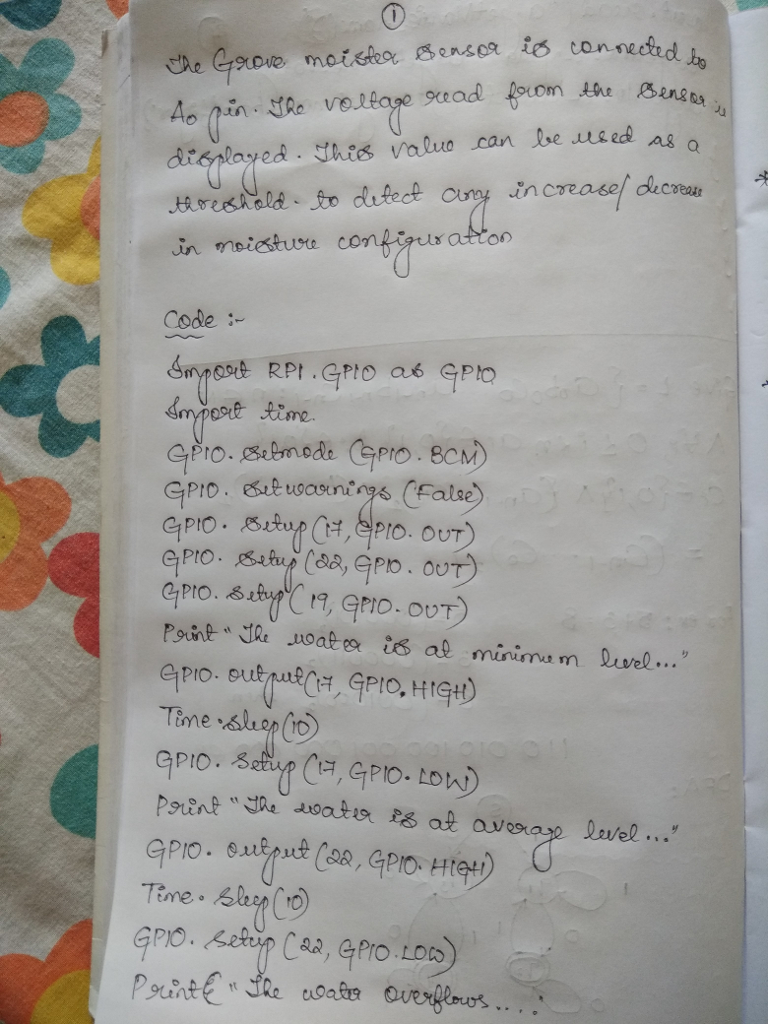 1
The Grove moister sensor is connected to
Ao pin. The voltage read from the sensor is
displayed. This value can be used as a
threshold. to detect any increase/decrease
in moisture configuration
Code :-
Import RPI.GPIO as GPIO
Import time.
GPIO. Setmode (GPIO.BCM)
GPIO. Setwarnings (False)
GPIO. Setup (17, GPIO.OUT)
GPIO. Setup (22, GPIO.OUT)
GPIO. Setup (19, GPIO.OUT)
Print "The water is at minimum level..."
GPIO. output (17, GPIO.HIGH)
Time.sleep(10)
GPIO. Setup (17, GPIO.LOW)
Print "The water is at average level..."
GPIO. output (22, GPIO.HIGH)
Time. Sleep (10)
GPIO. Setup (22, GPIO.LOW)
Print( "The water overflows....